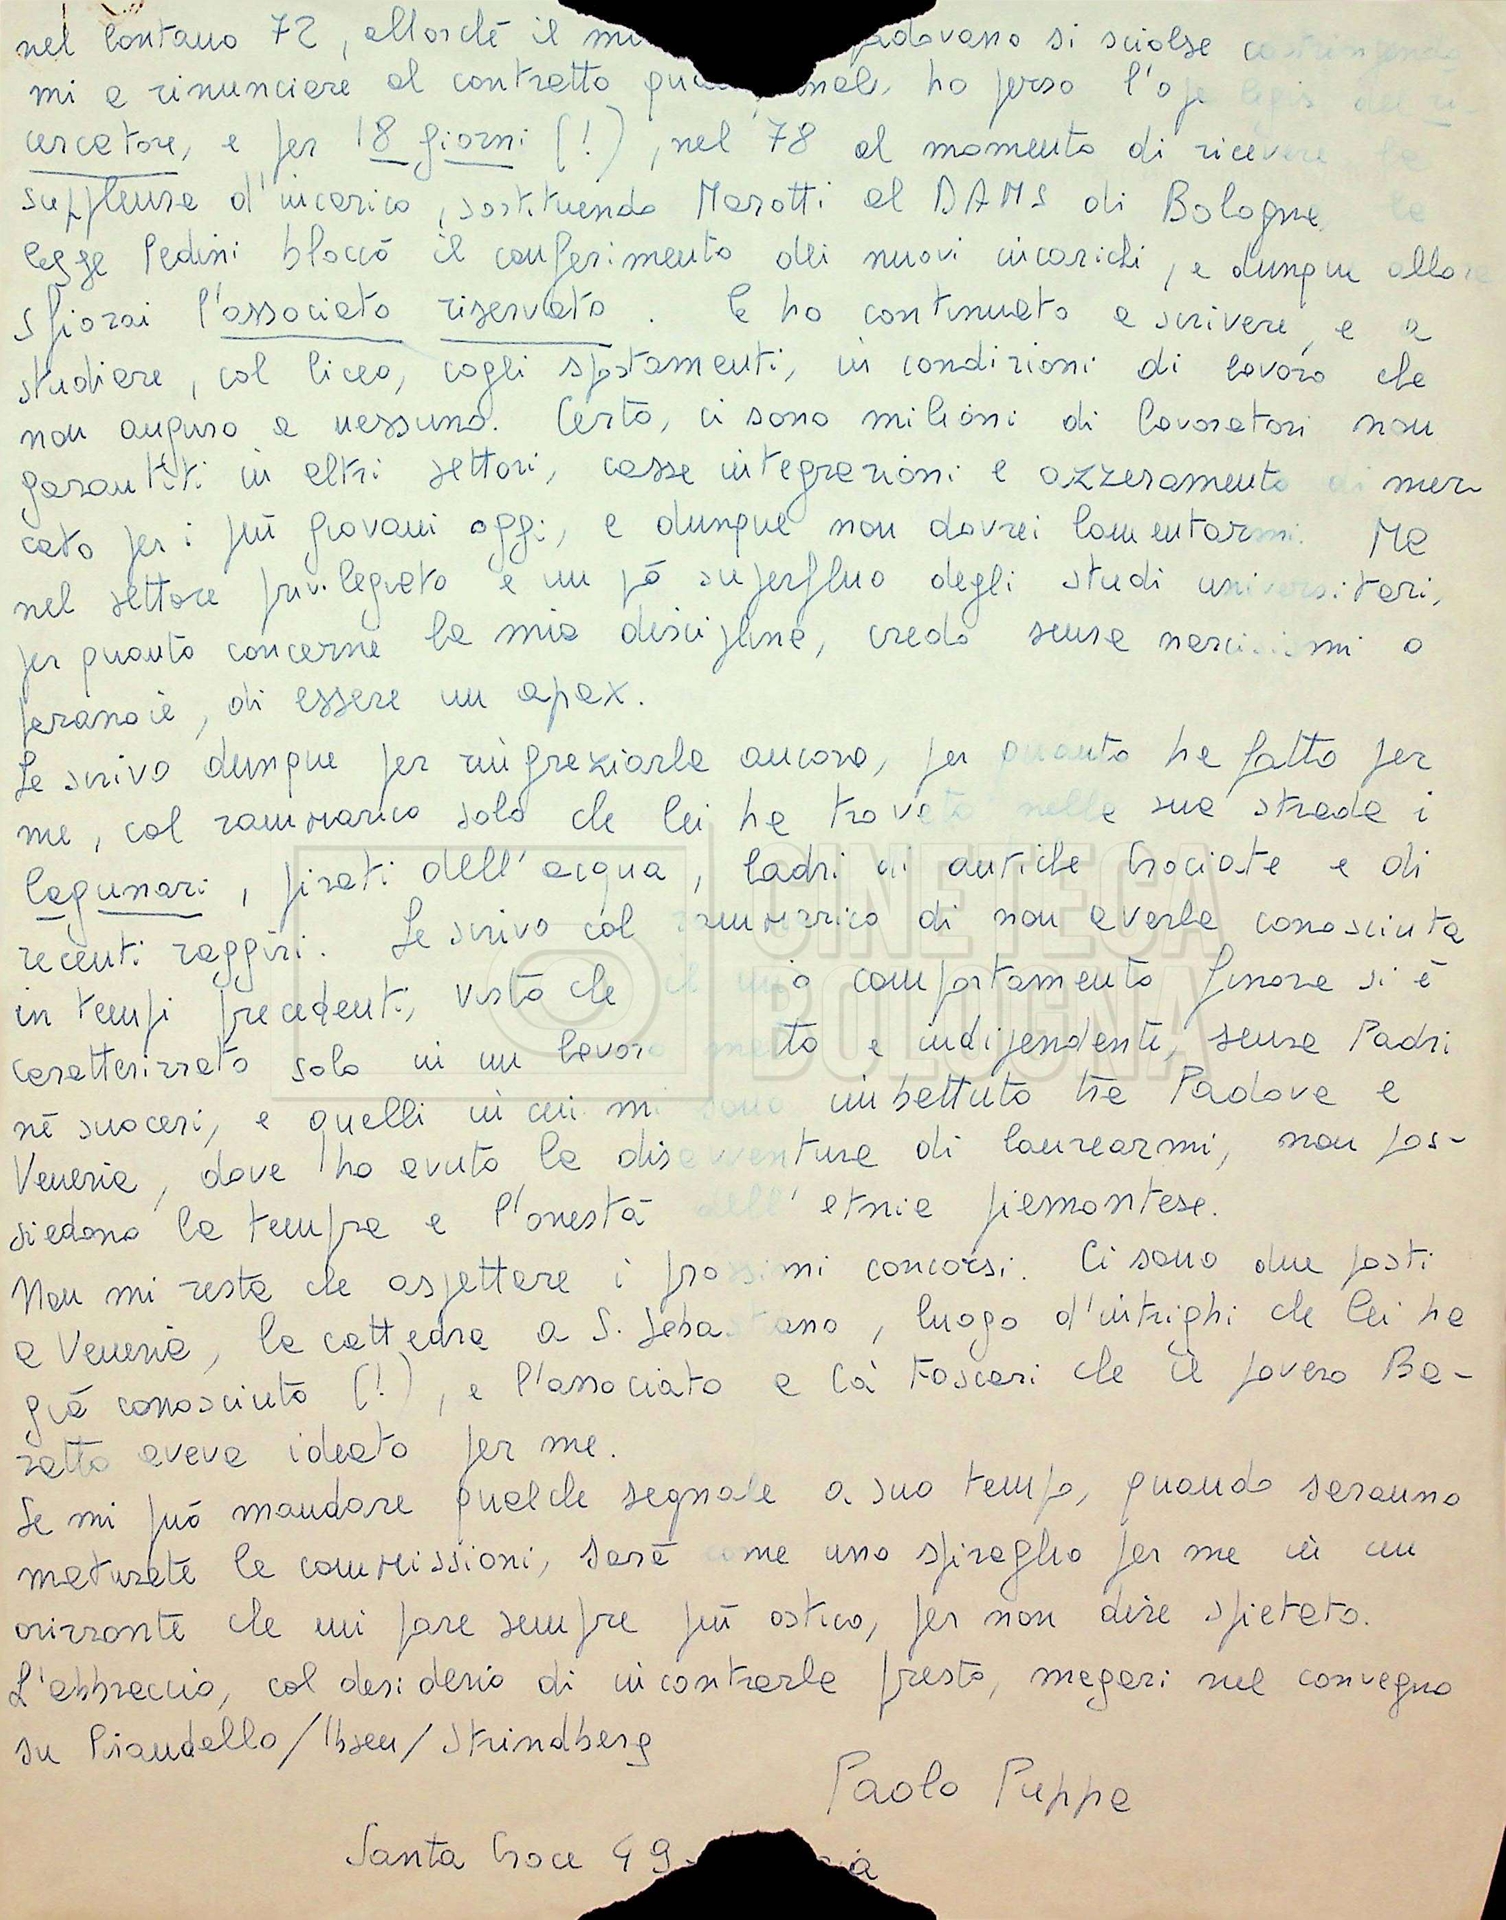 nel lontano 72, allorché il padovano si sciolse costringendo
mi a rinunciare al contratto ho perso l'ope legis del ri-
cercatore, e per 18 giorni (!), nel 78 al momento di ricevere la
supplenza d'incarico, sostituendo Marotti al DAMS di Bologna, la
legge Pedini bloccò il conferimento dei nuovi incarichi, e dunque allora
sfiorai l'associato riservato. E ho continuato a scrivere, e a
studiare, col liceo, cogli spostamenti, in condizioni di lavoro che
non auguro a nessuno. Certo, ci sono milioni di lavoratori non
garantiti in altri settori, casse integrazioni e azzeramento di mer-
cato per i più giovani oggi, e dunque non dovrei lamentarmi. Ma
nel settore privilegiato e un pò superfluo degli studi universitari,
per quanto concerne la mia disciplina, credo senza narcisismi o
paranoie, di essere un apax.
Le scrivo dunque per ringraziarla ancora, per quanto ha fatto per
me, col rammarico solo che lei ha trovato nella sua strada i
lagunari, pirati dell'acqua, ladri di antiche Crociate e di
recenti raggiri. Le scrivo col rammarico di non averla conosciuta
in tempi precedenti, visto che il mio comportamento finora si è
caratterizzato solo in un lavoro e indipendente, senza Padri
nè suoceri, e quelli in cui mi sono imbattuto tra Padova e
Venezia, dove ho avuto la disavventura di laurearmi, non pos-
siedono la tempra e l'onestà dell'etnia piemontese.
Non mi resta che aspettare i prossimi concorsi. Ci sono due posti
a Venezia, la cattedra a S. Sebastiano, luogo d'intrighi che lei ha
già conosciuto (!), e l'associato a Cà Foscari che il povero Ba-
ratto aveva ideato per me.
Se mi può mandare qualche segnale a suo tempo, quando saranno
maturate le commissioni, sarà come uno spiraglio per me in un
orizzonte che mi pare sempre più ostico, per non dire spietato.
L'abbraccio, col desiderio di incontrarla presto, magari nel convegno
su Pirandello/Ibsen/Strindberg
Paolo Puppa
Santa Croce 49
CINETECA
BOLOGNA